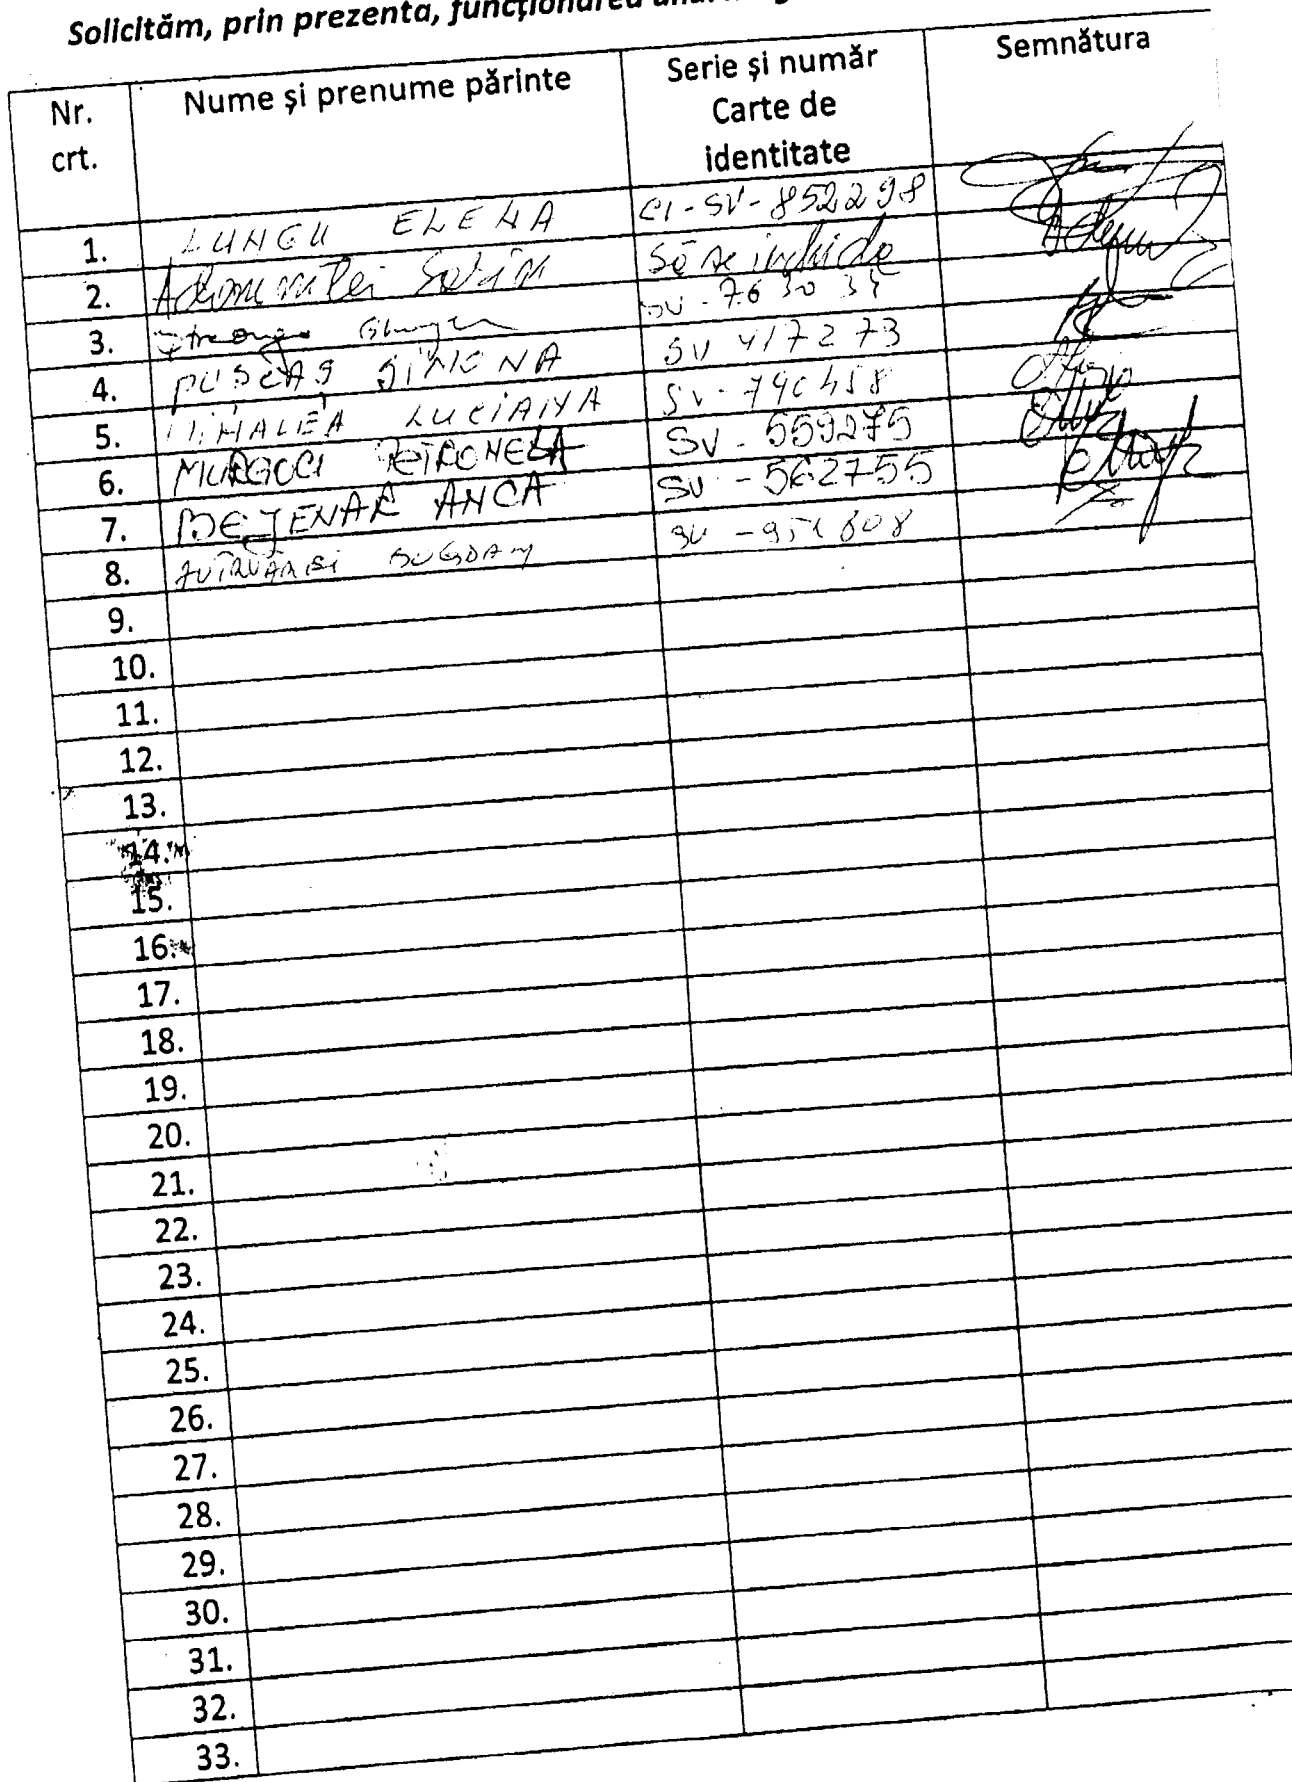 Solicităm, prin prezenta, funcționarea
Nr. crt. Nume și prenume părinte Serie și număr Carte de identitate Semnătura
1. LUNGU ELENA CI-SV-852298
2. Sorin Să se închidă
3. SV - 763034
4. PUSCAS SIMONA SV 417273
5. MIHALEA LUCIANA SV-790458
6. MURGOCI PETRONELA SV - 559275
7. MEJENAR ANCA SV - 562755
8. BOGDAN SV - 951808
9.
10.
11.
12.
13.
14.
15.
16.
17.
18.
19.
20.
21.
22.
23.
24.
25.
26.
27.
28.
29.
30.
31.
32.
33.